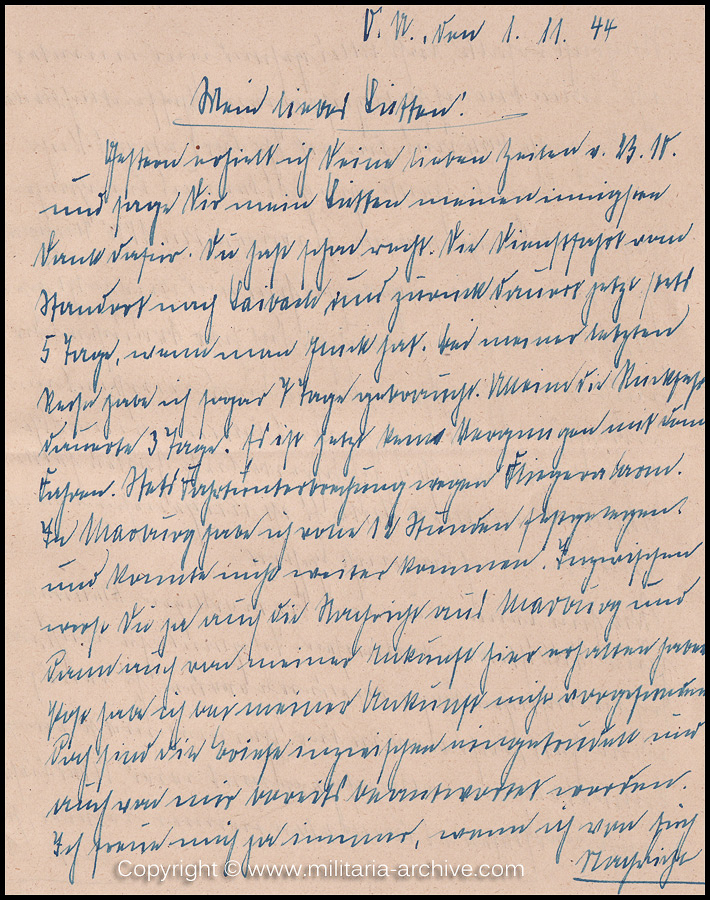 O. U., den 1. 11. 44
Mein liebes Lieschen!
Gestern erhielt ich Deine lieben Zeilen v. 23. 10.
und sage Dir mein Lieschen meinen innigsten
Dank dafür. Du hast schon recht. Die Dienstfahrt vom
Standort nach Laibach und zurück dauert jetzt stets
5 Tage, wenn man Glück hat. Bei meiner letzten
Reise habe ich sogar 7 Tage gebraucht. Allein die Rückfahrt
dauerte 3 Tage. Es ist jetzt kein Vergnügen mit dem
Fahren. Stets Fahrtunterbrechung wegen Fliegeralarm.
In Marburg habe ich volle 12 Stunden festgelegen
und konnte nicht weiter kommen. Inzwischen
wirst Du ja auch die Nachricht aus Marburg und
dann auch von meiner Ankunft hier erhalten haben.
Post habe ich bei meiner Ankunft nicht vorgefunden
doch sind die Briefe inzwischen eingetrudelt und
auch von mir bereits beantwortet worden.
Ich freue mich ja immer, wenn ich von Euch
Nachricht
Copyright © www.militaria-archive.com